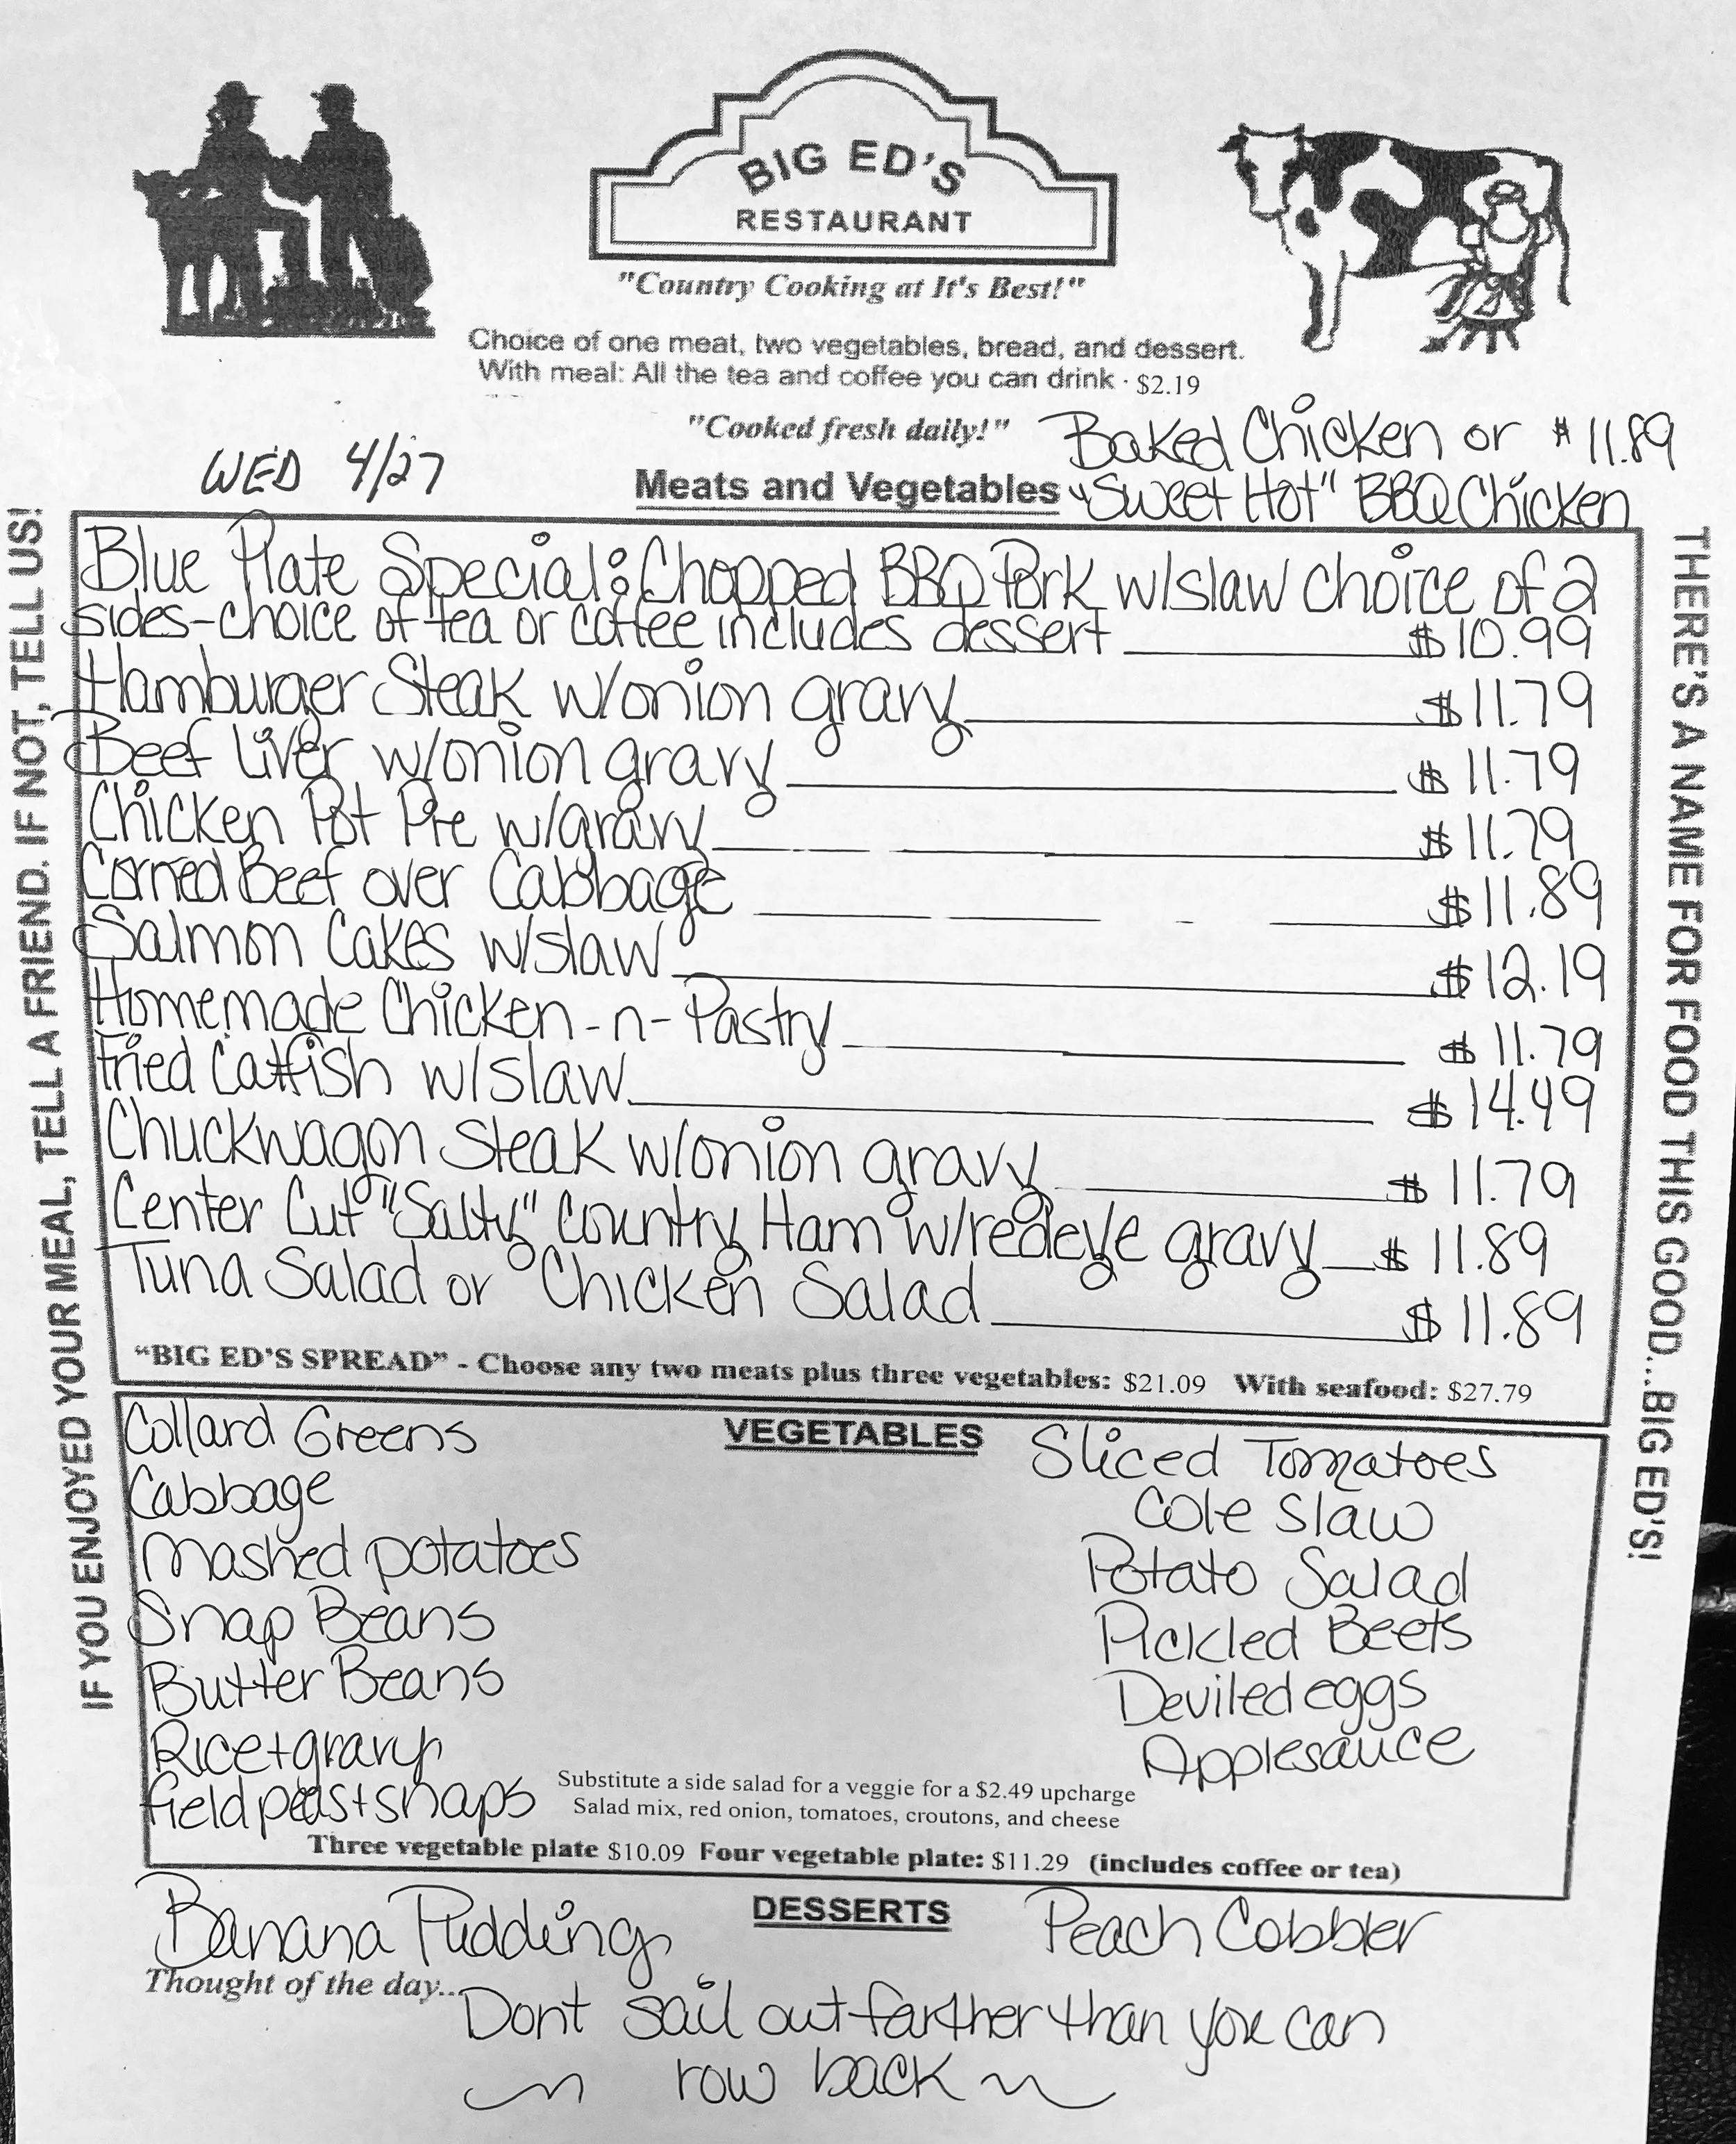 BIG ED'S
RESTAURANT
"Country Cooking at It's Best!"
Choice of one meat, two vegetables, bread, and dessert.
With meal: All the tea and coffee you can drink · $2.19
"Cooked fresh daily!"
Baked Chicken or $11.89
"Sweet Hot" BBQ Chicken
WED 4/27
Meats and Vegetables
Blue Plate Special: Chopped BBQ Pork w/slaw choice of 2
sides-choice of tea or coffee includes dessert $10.99
Hamburger Steak w/onion gravy $11.79
Beef Liver w/onion gravy $11.79
Chicken Pot Pie w/gravy $11.79
Corned Beef over Cabbage $11.89
Salmon Cakes w/slaw $12.19
Homemade Chicken-n-Pastry $11.79
Fried Catfish w/slaw $14.49
Chuckwagon Steak w/onion gravy $11.79
Center Cut "Salty" Country Ham w/redeye gravy $11.89
Tuna Salad or Chicken Salad $11.89
"BIG ED'S SPREAD" - Choose any two meats plus three vegetables: $21.09 With seafood: $27.79
VEGETABLES
Collard Greens
Cabbage
Mashed potatoes
Snap Beans
Butter Beans
Rice+gravy
field peas+snaps
Sliced Tomatoes
Cole Slaw
Potato Salad
Pickled Beets
Deviled eggs
Applesauce
Substitute a side salad for a veggie for a $2.49 upcharge
Salad mix, red onion, tomatoes, croutons, and cheese
Three vegetable plate $10.09 Four vegetable plate: $11.29 (includes coffee or tea)
DESSERTS
Banana Pudding
Peach Cobbler
Thought of the day...
Dont sail out farther than you can
row back
IF YOU ENJOYED YOUR MEAL, TELL A FRIEND. IF NOT, TELL US!
THERE'S A NAME FOR FOOD THIS GOOD...BIG ED'S!